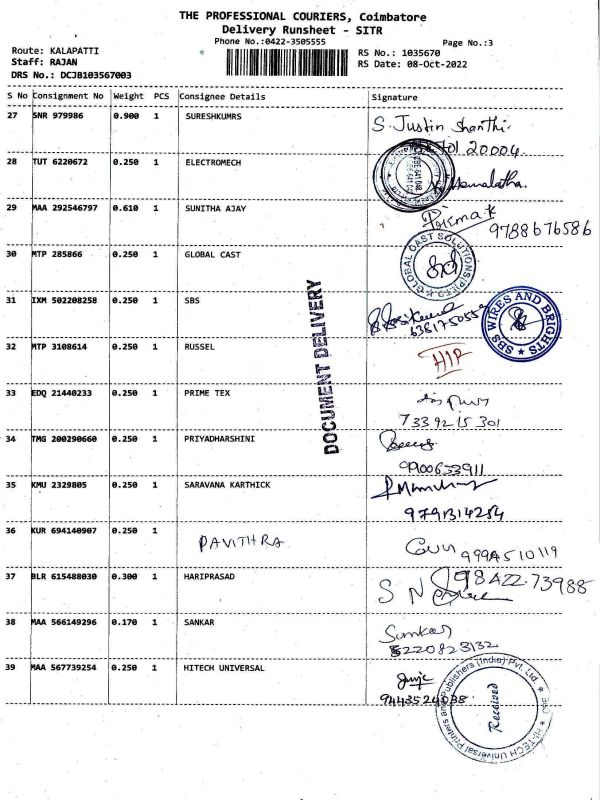 THE PROFESSIONAL COURIERS, Coimbatore
Delivery Runsheet - SITR
Phone No.:0422-3505555
Page No.:3
Route: KALAPATTI
RS No.: 1035670
Staff: RAJAN
RS Date: 08-Oct-2022
DRS No.: DCJB103567003
S No Consignment No Weight PCS Consignee Details Signature
27 SNR 979986 0.900 1 SURESHKUMRS S. Justin Shanthi.
20004
28 TUT 6220672 0.250 1 ELECTROMECH
Hemalatha.
29 MAA 292546797 0.610 1 SUNITHA AJAY
9788676586
30 MTP 285866 0.250 1 GLOBAL CAST
GLOBAL CAST SOLUTIONS
31 IXM 502208258 0.250 1 SBS
SBS WIRES AND BRIGHTS
DOCUMENT DELIVERY
32 MTP 3108614 0.250 1 RUSSEL
33 EDQ 21440233 0.250 1 PRIME TEX
7339215301
34 TMG 200290660 0.250 1 PRIYADHARSHINI
9900653911
35 KMU 2329805 0.250 1 SARAVANA KARTHICK
9791314254
36 KUR 694140907 0.250 1 PAVITHRA
9994510119
37 BLR 615488030 0.300 1 HARIPRASAD
98422-73988
38 MAA 566149296 0.170 1 SANKAR Sankar
8220823132
39 MAA 567739254 0.250 1 HITECH UNIVERSAL
9443524038
HI-TECH Universal Printers and Publishers (India) Pvt. Ltd.
Received